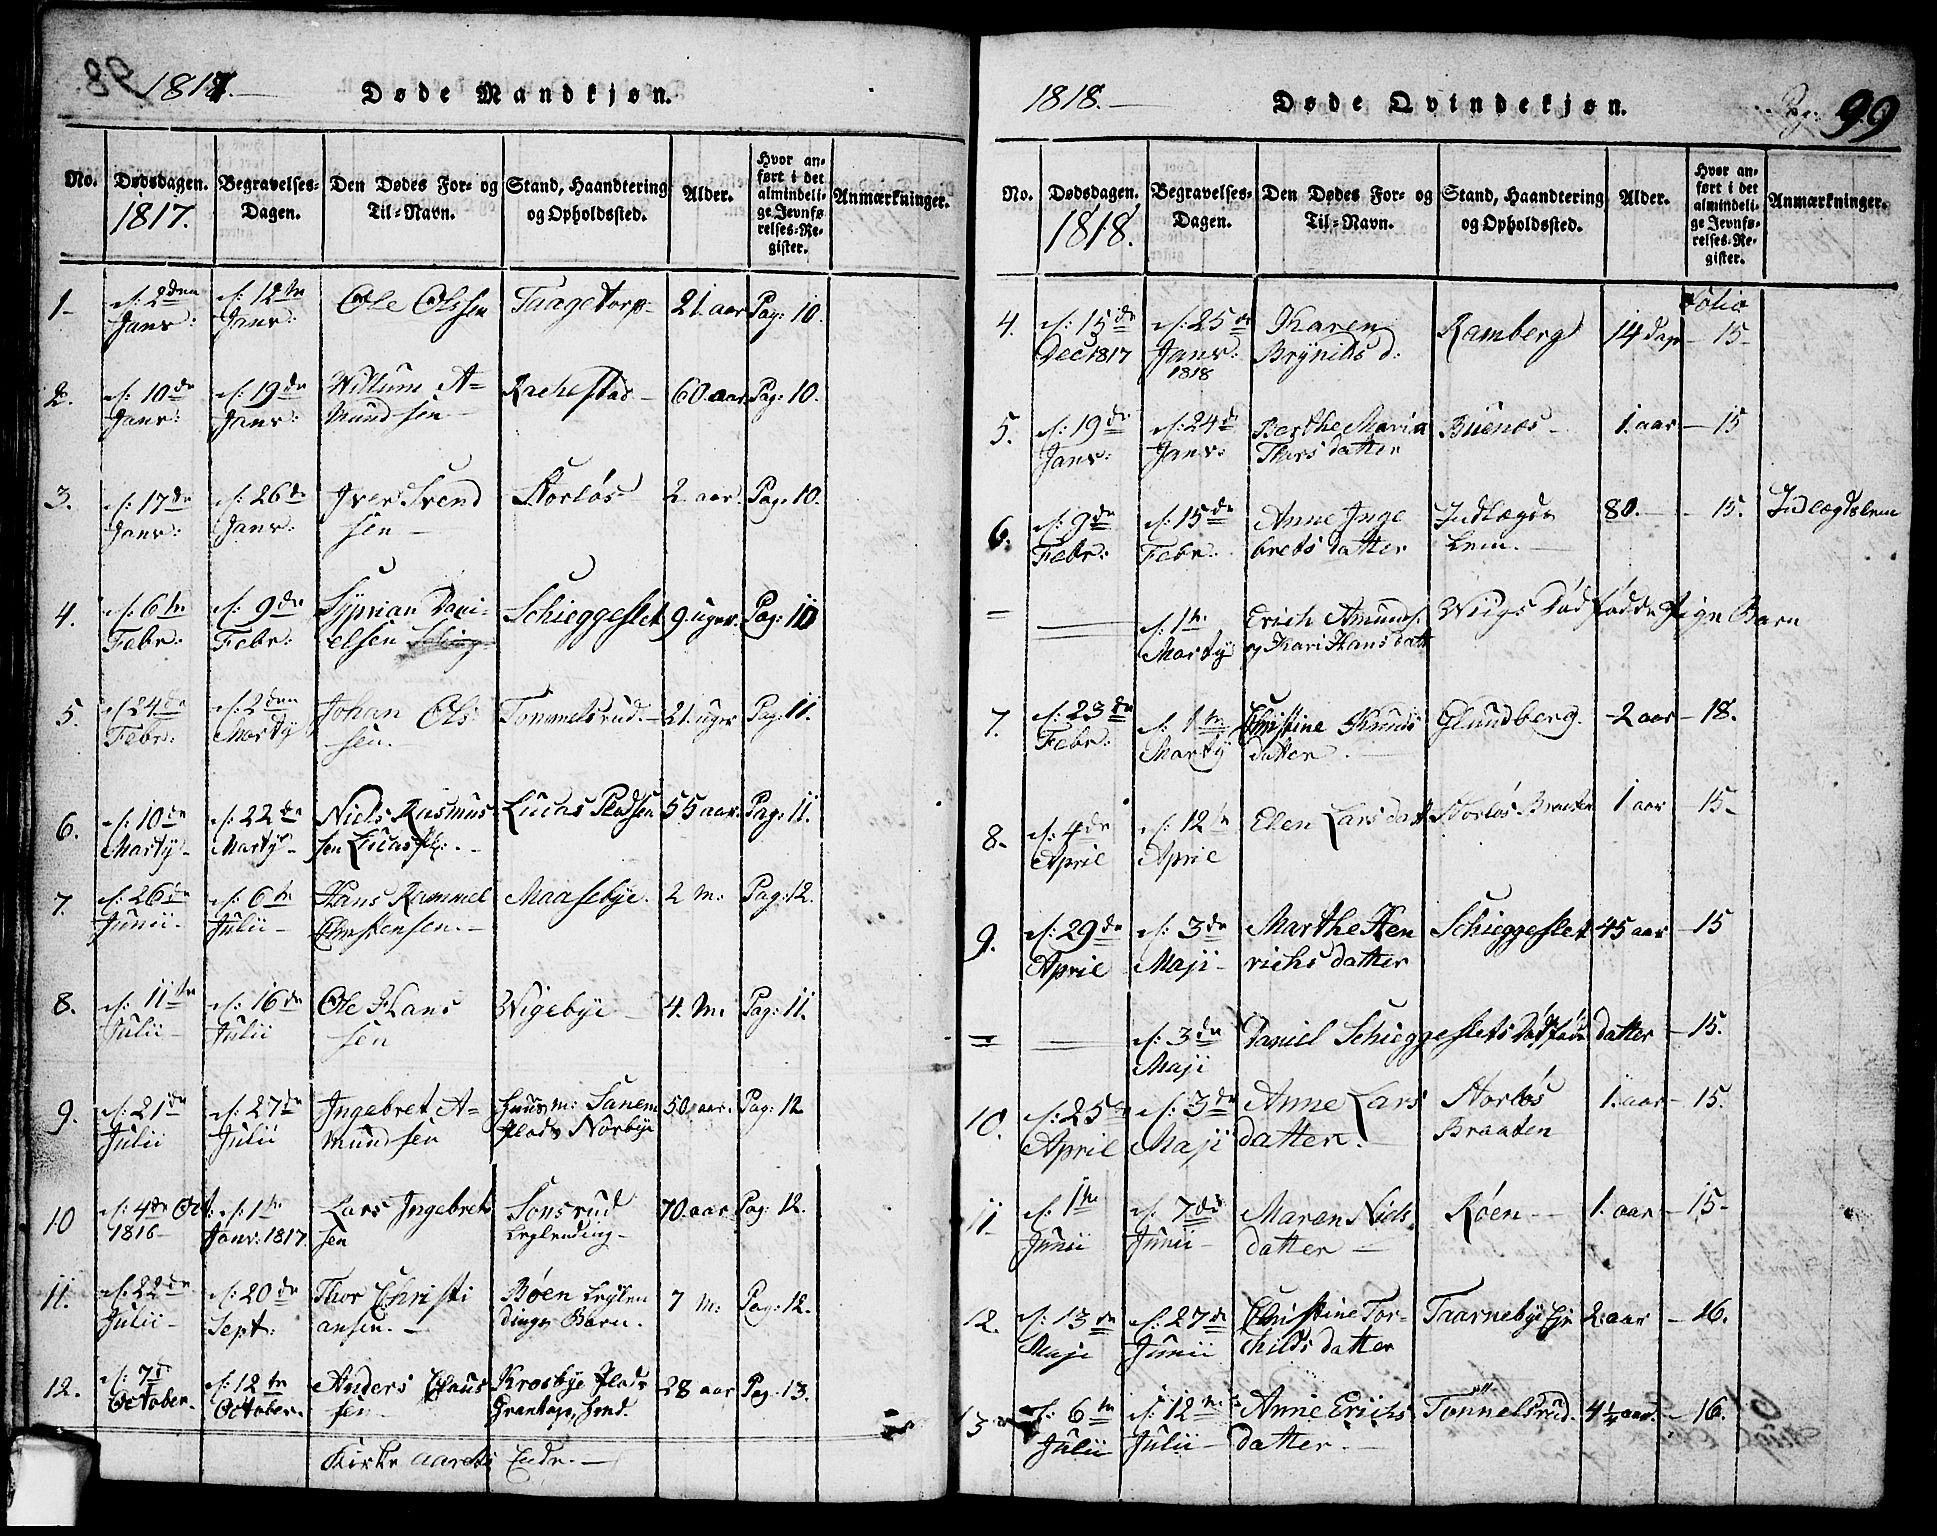 1817.
Døde Mandkjøn.
No.
Dødsdagen.
1817.
Begravelses-
Dagen.
Den Dødes For- og
Til-Navn.
Stand, Haandtering
og Opholdssted.
Alder.
Hvor an-
ført i det
almindeli-
ge Jevnfø
relses-Re-
gister.
Anmærkninger.
1- d: 2den Janv: d: 12te Janv: Ole Olssen Taagetorp- 21. aar Pag: 10.
2. d: 10de Janv: d: 19de Janv: Willum A-
mundsen Rachestad - 60. aar Pag: 10.
3. d: 17de Janv: d: 26de Janv: Iver Svend
sen - Storløs 2. aar. Pag: 10.
4. d: 6te Febr: d: 9de Febr: Syprian Dani-
elsen Schieggeslet 9. uger. Pag: 10
5. d: 24de Febr: d: 2den Martÿ Johan Ols-
sen. Tommelsrud. - 21. uger Pag: 11.
6. d: 10de Martÿ- d: 22de Martÿ- Niels Rasmus
sen Lucaspl: - Lucas Pladsen 55 aar. Pag: 11.
7. d: 26de Junii- d: 6te Julii- Hans Rammel
Christensen. - Maasebye. 2 m: Pag: 12.
8. d: 11te Julii- d: 16de Julii Ole Hans
sen Wigebye - 4. m. Pag: 11.
9. d: 21de Julii d: 27de Julii Ingebret A-
mundsen Huusm: Sanem
Plads Norbye 50 aar. Pag: 12
10 d: 4de Oct:
1816- d: 1te
Janv: 1817. Lars Ingebret
sen Sonsrud
Leglending- 70. aar Pag: 12.
11. d: 22de Julii- d: 20de Sept: Thor Christi
ansen. - Bøen Leglen
dings Barn. 7 m: Pag: 12.
12. d: 7d October. d: 12te October. Anders Claus
sen - Krosbye Plads 28 aar Pag. 13.
Kirke aarets Ende. -
1818. -
Døde Qvindekjøn.
Pag: 99
No.
Dødsdagen.
1818.
Begravelses-
Dagen.
Den Dødes For- og
Til-Navn.
Stand, Haandtering
og Opholdssted.
Alder.
Hvor an-
ført i det
almindeli-
ge Jevnfø-
relses-Re-
gister.
Anmærkninger.
Folio
4. d: 15de
Dec 1817 d: 25de
Janv:
1818 Karen
Brÿnilds d: Ramberg 14 dage - 15-
5. d: 19de Janv: d: 24de Janv: Berthe Maria
Thorsdatter Buenæs - 1. aar - 15
6. d: 9de Febr: d: 15de Febr. Anne Inge
bretsdatter Indlægds
Lem. - 80. - - 15. Indlægdslem
= d: 1te Martÿ Erich Amunds.
og Kari Hansdatt Wiigs Dødfødde Pige Barn
7. d: 23de Febr: d: 1te Martÿ Christine Knuds
datter. Glundberg. - 2 aar - 18.
8. d: 4de April d: 12te April Elen Larsdatt Storløs Braaten 1 aar - 15-
9. d: 29de April d: 3de Maji- Marthe Hen
richsdatter Schieggeslet 45 aar - 15
= d: 3de Maji Daniel Schieggeslets Dødføde datter - 15.
10. d: 25de April d: 3de Maji Anne Lars
datter. - Storløs
Braaten 1. aar - 15.
11 d: 1te Junii d: 7de Junii- Maren Niels
datter - Røen - 1. aar - 15-
12. d: 13de Maji d: 27de Junii Christine Tor-
childsdatter Taarnebye Eje 2. aar - 16.
13 d: 6te Julii d: 12te Julii- Anne Erichs
datter. - Tönnelsrud. 4½ aar. - 16.